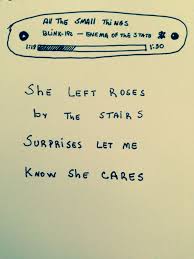 All The Small Things
Blink-182 – Enema of the State
1:18 1:30
She Left Roses
by the stairs
Surprises let me
know she cares